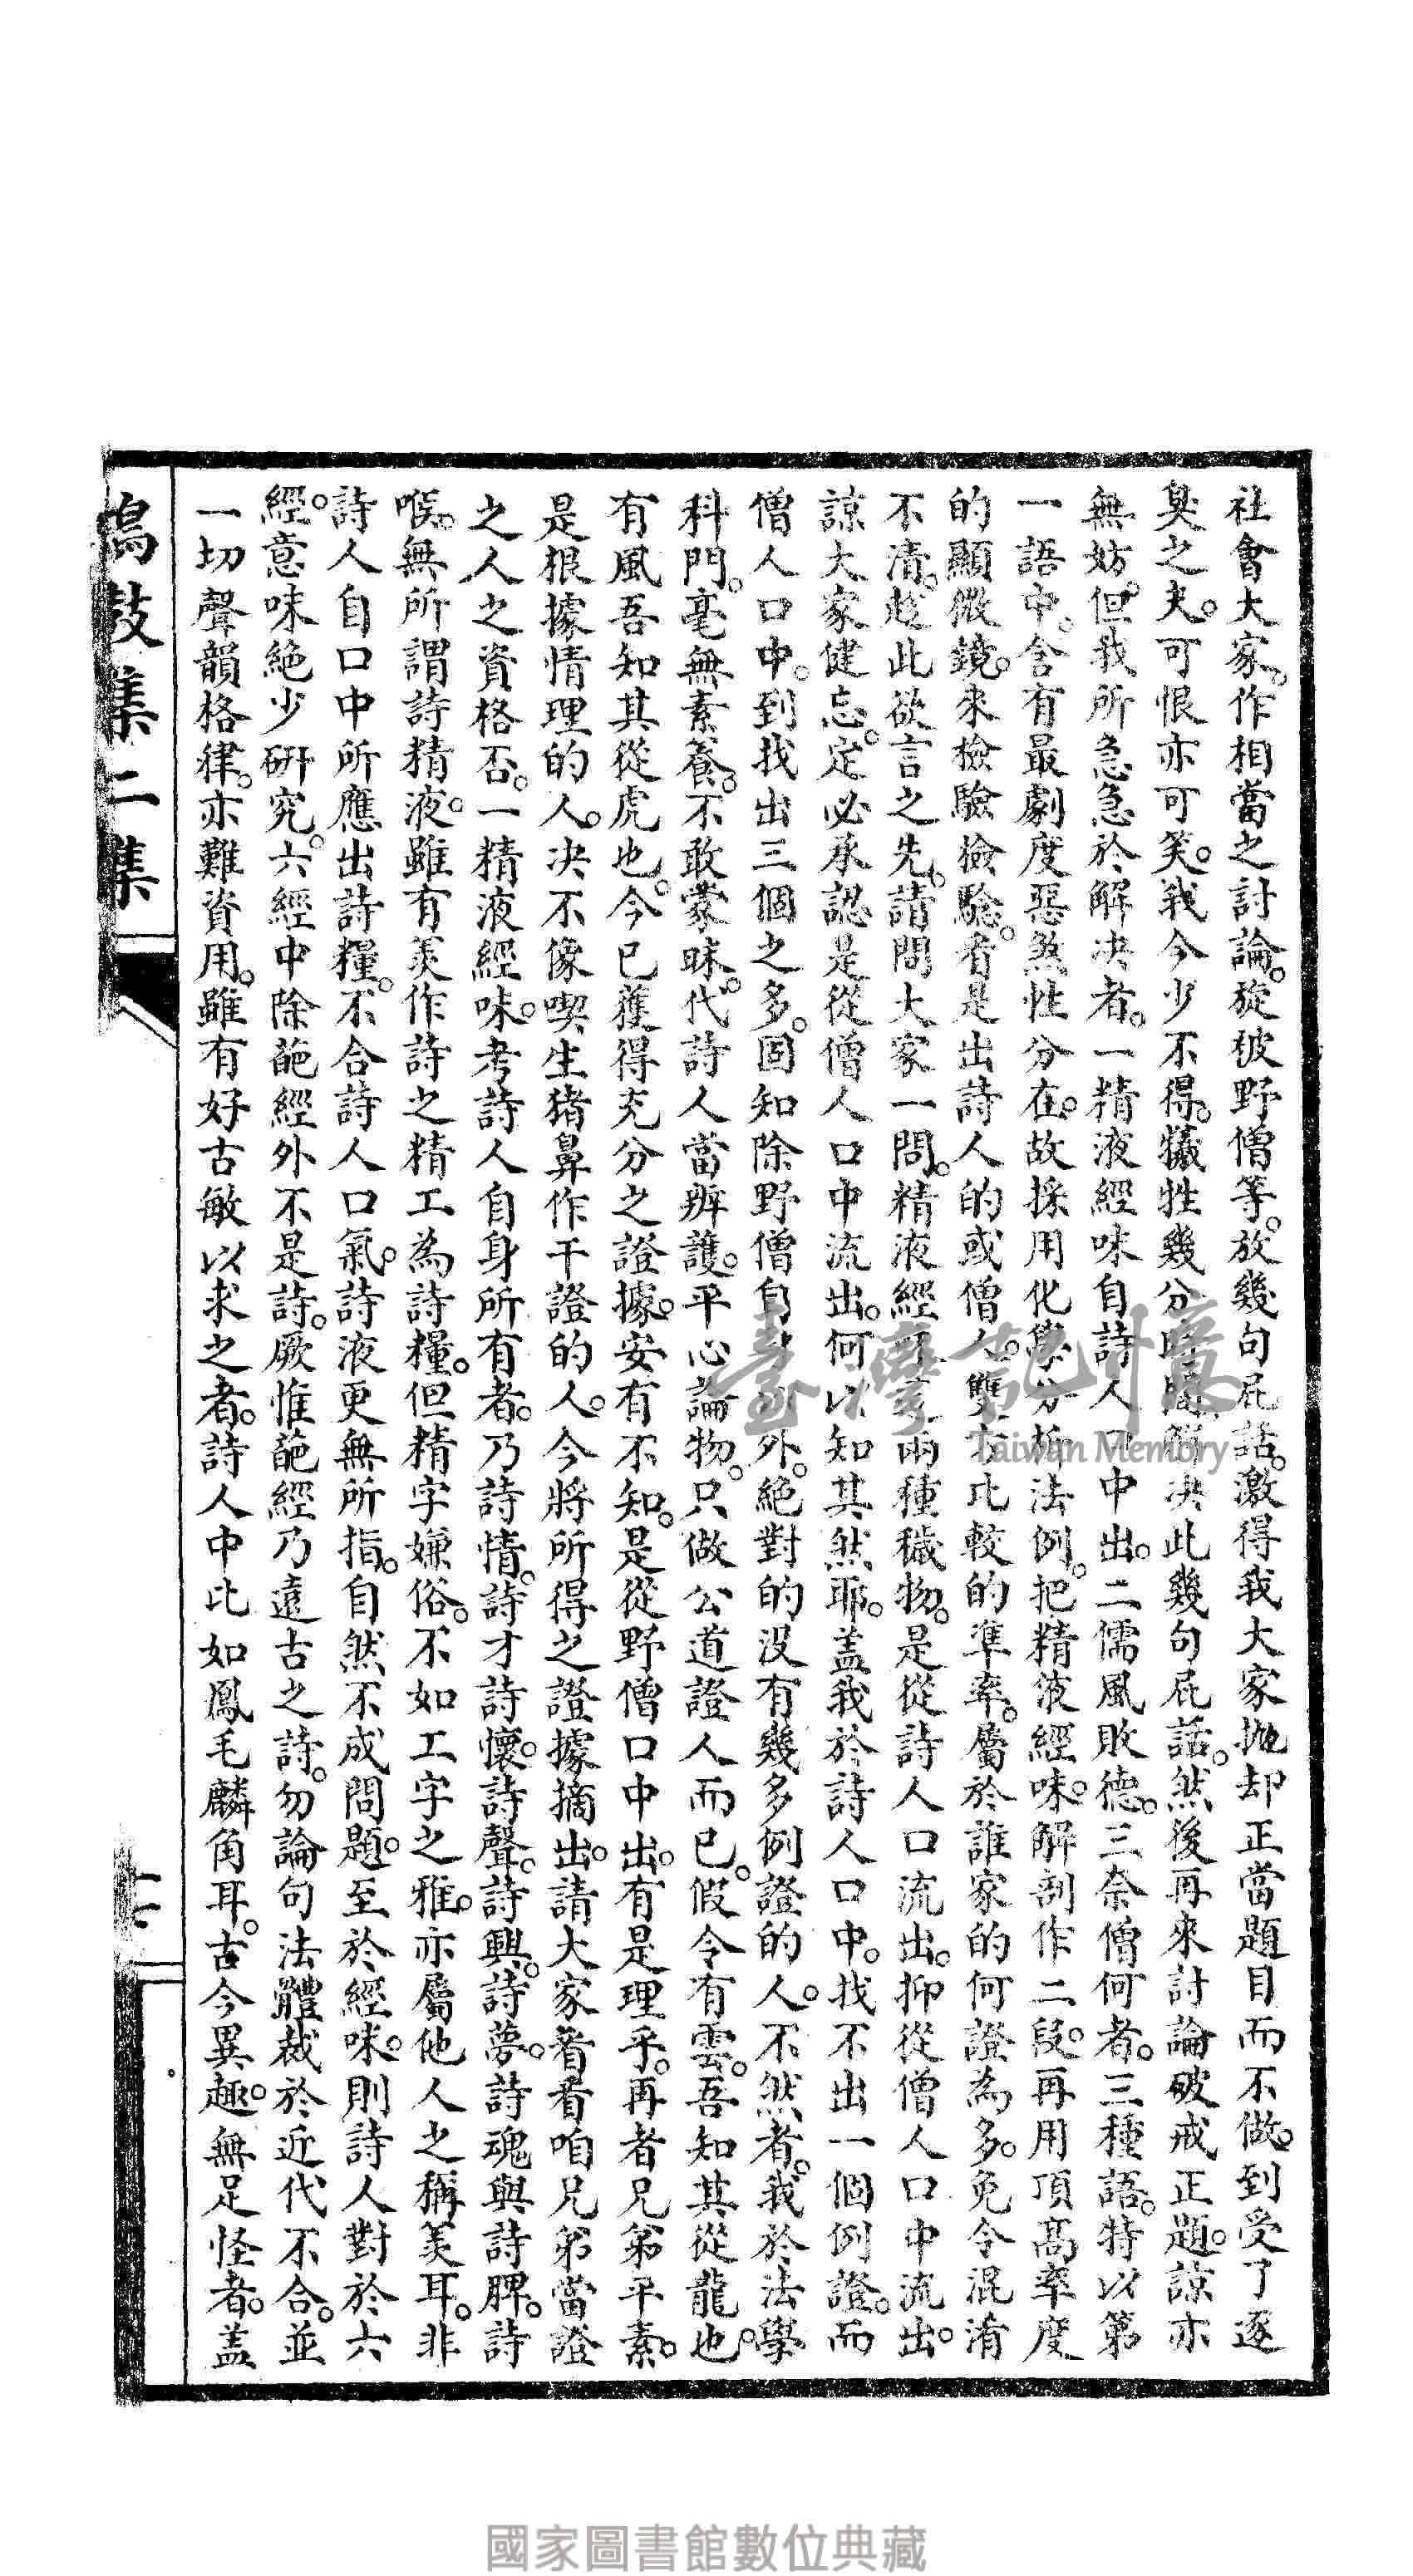 社會大家。作相當之討論。旋彼野僧等。放幾句屁話。激得我大家拋却正當題目而不做。到受了逐
臭之夫。可恨亦可笑。我今少不得。犧牲幾分時間解决此幾句屁話。然後再來討論破戒正題。諒亦
無妨。但我所急急於解决者。一精液經味自詩人口中出。二儒風敗德。三奈僧何者。三種語。特以第
一語中。含有最劇度惡煞性分在。故採用化學分析法例。把精液經味。解剖作二段。再用頂高率度
的顯微鏡。來檢驗檢驗。看是出詩人的或僧人。雙方比較的準率。屬於誰家的何證為多。免令混淆
不清。趁此欲言之先。請問大家一問。精液經味這兩種穢物。是從詩人口流出。抑從僧人口中流出。
諒大家健忘。定必承認是從僧人口中流出。何以知其然耶。盖我於詩人口中。找不出一個例證。而
僧人口中。到找出三個之多。固知除野僧自身以外。絕對的沒有幾多例證的人。不然者。我於法學
科門。毫無素養。不敢蒙昧。代詩人當辨護。平心論物。只做公道證人而已。假令有雲。吾知其從龍也。
有風吾知其從虎也。今已獲得充分之證據。安有不知。是從野僧口中出。有是理乎。再者兄弟平素。
是根據情理的人。决不像喫生猪鼻作干證的人。今將所得之證據摘出。請大家看看咱兄弟當證
之人之資格否。一精液經味。考詩人自身所有者。乃詩情。詩才詩懷。詩聲。詩興。詩夢。詩魂與詩脾。詩
喉。無所謂詩精液。雖有羙作詩之精工為詩糧。但精字嫌俗。不如工字之雅。亦屬他人之稱羙耳。非
詩人自口中所應出詩糧。不合詩人口氣。詩液更無所指。自然不成問題。至於經味。則詩人對於六
經。意味絕少研究。六經中除葩經外不是詩。厥惟葩經乃遠古之詩。勿論句法體裁於近代不合。並
一切聲韻格律。亦難資用。雖有好古敏以求之者。詩人中比如鳳毛麟角耳。古今異趣。無足怪者。盖
鳴鼓集二集
臺灣記憶
Taiwan Memory
國家圖書館數位典藏